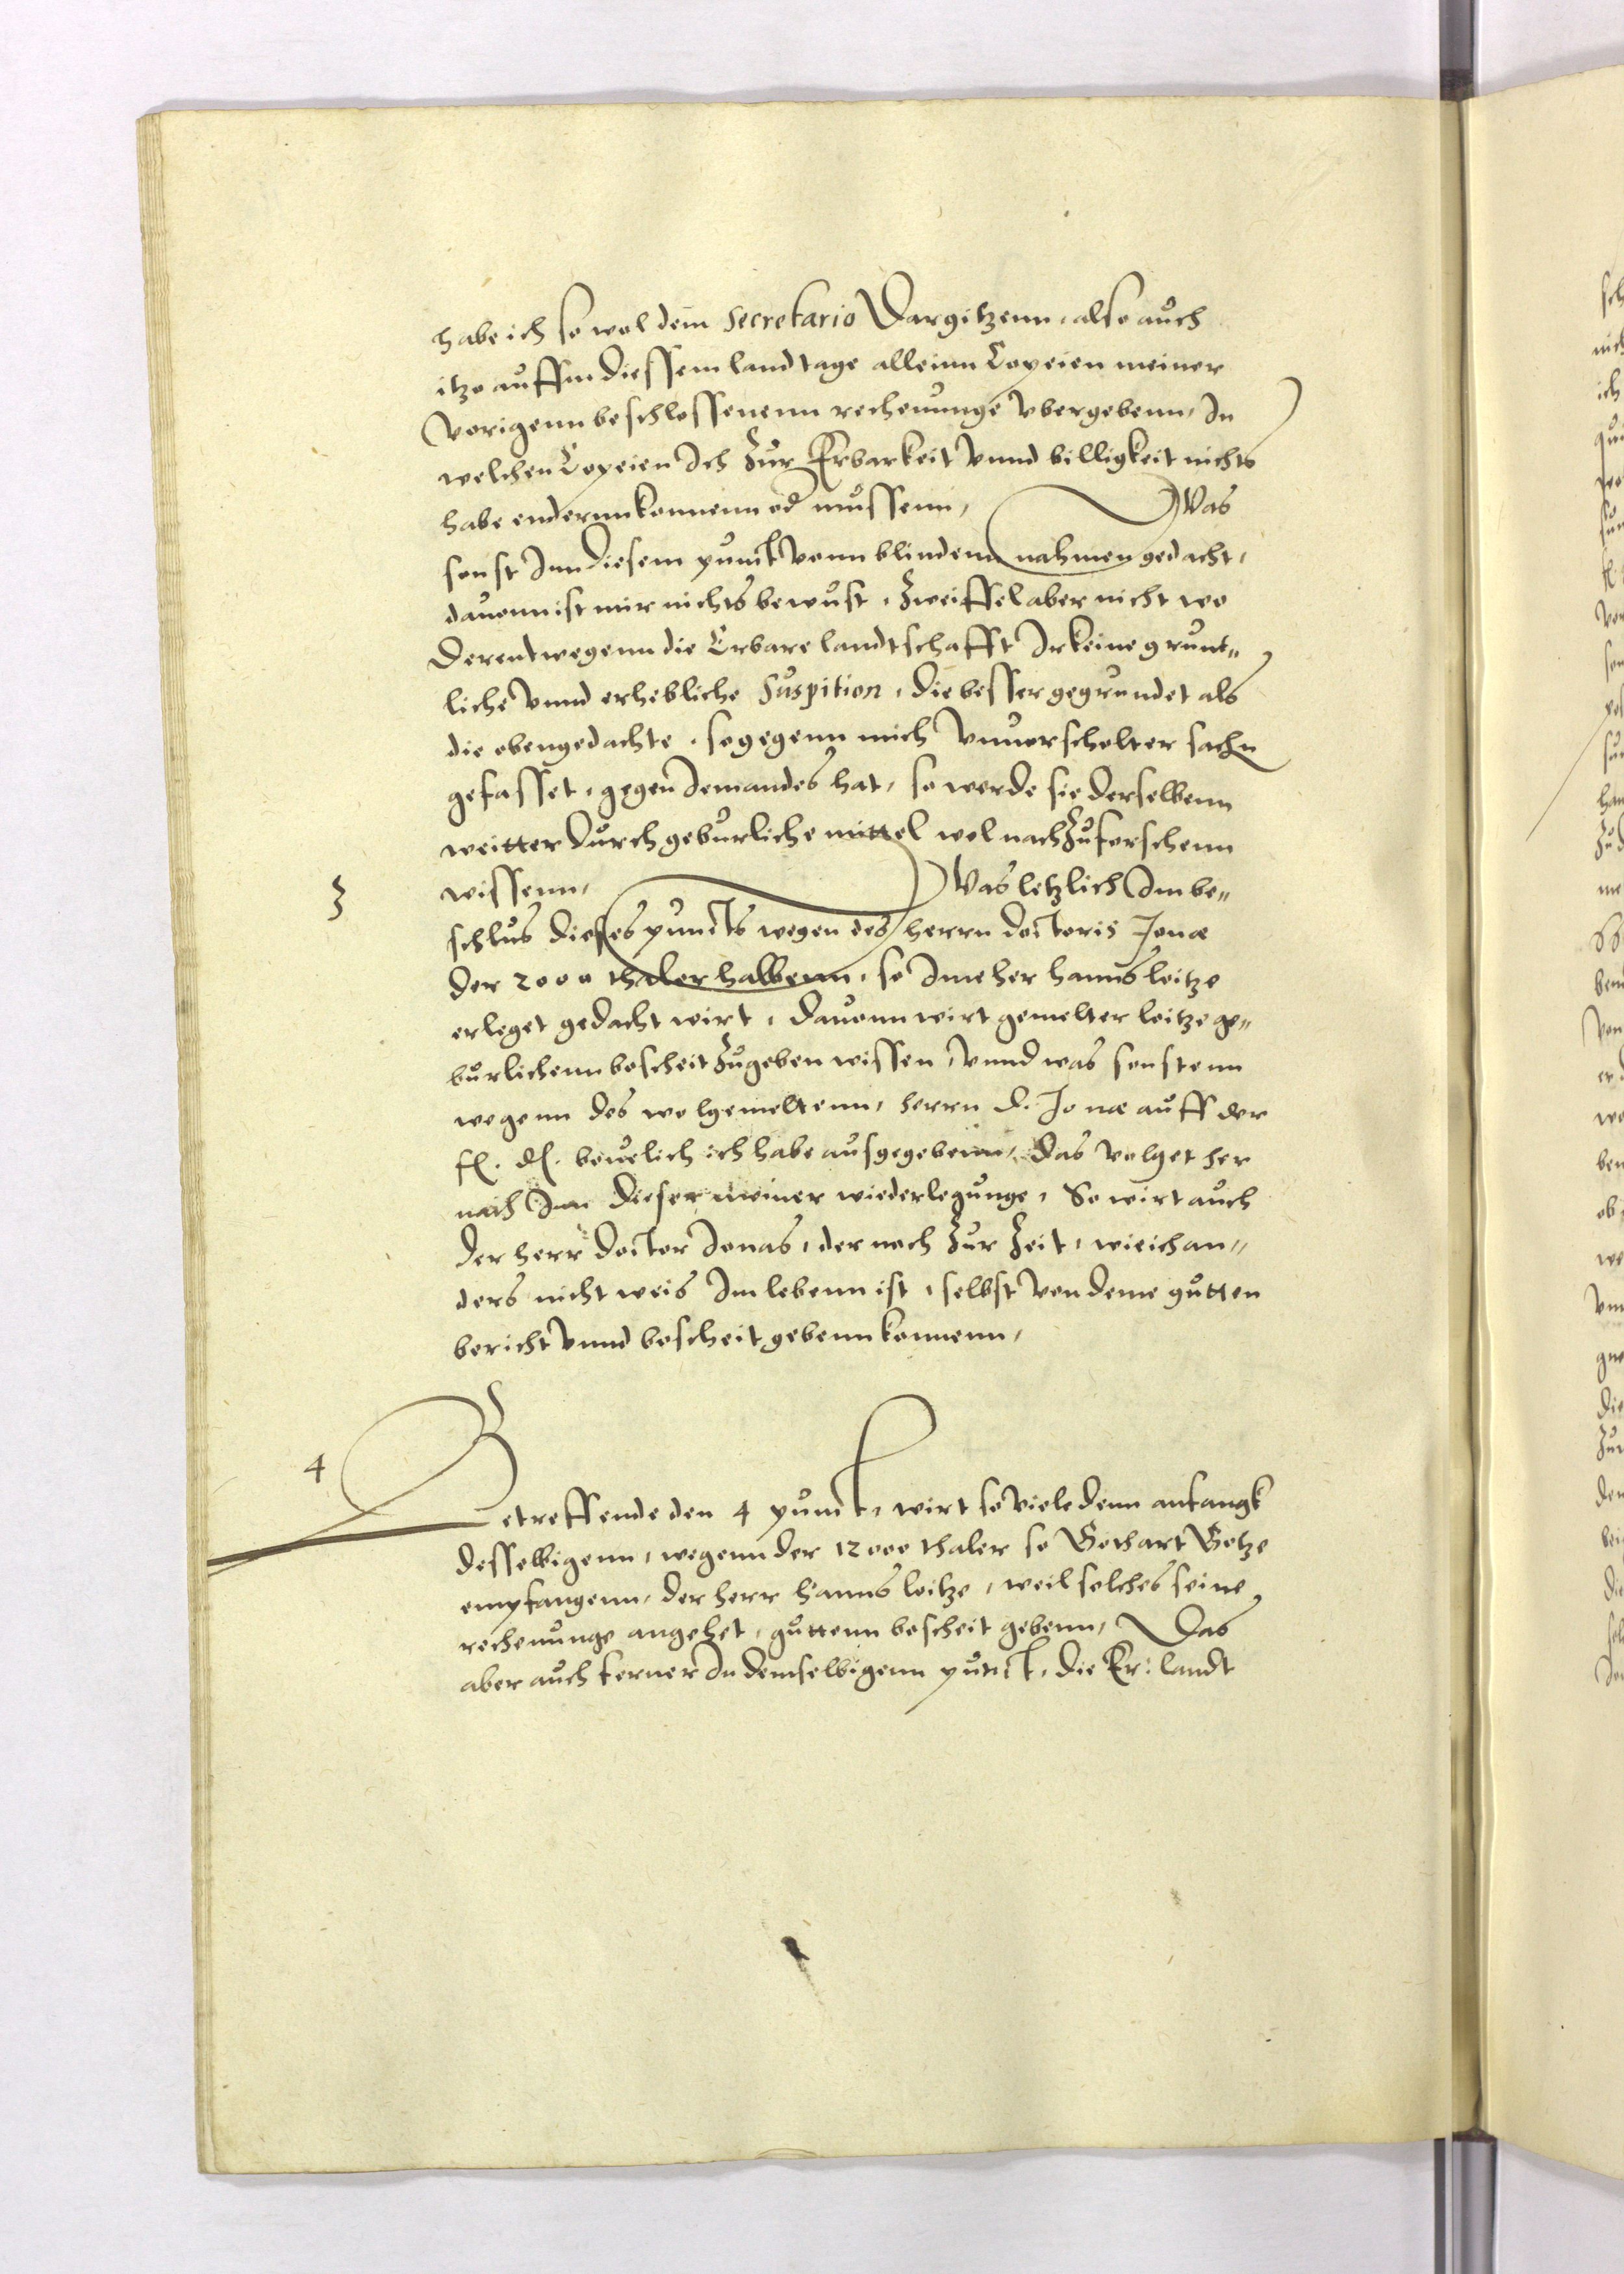 habe ich so wol dem Secretario Dargitzenn, also auch
itzo auffm diessem landtage alleinn Copeien meiner
vorigenn beschlossenenn rechenunge vbergebenn, In
welchen Copeien Ich zur Erbarkeit vnnd billigkeit nichts
habe endernn konnenn od mussenn, Was
sonst Inn diesem punct vonn blindenn nahmen gedacht,
dauonn ist mir nichts bewust, zweiffel aber nicht wo
derentwegenn die Erbare landtschafft Irkeine grunt„
liche vnnd erhebliche Suspition, die besser gegrundet als
die obengedachte, so gegenn mich vnuorscholter sachn
gefasset, gegen Iemandes hat, so werde sie derselbenn
weitter durch geburliche mittel wol nachzuforschenn
3 wissenn, Was letzlich Im be„
schlus dieses puncts wegen des herrn doctoris Jonæ
der 2000 thaler halbenn, so Ime her hanns leitze
erleget gedacht wirt, dauonn wirt gemelter leitze ge„
burlichenn bescheit zugeben wissen, vnnd was sonstenn
wegenn des wolgemeltenn, herrn D. Jonæ auff der
f. d. beuelich ich habe ausgegebenn, das volget her
nach Inn dieser meiner wiederlegunge, So wirt auch
der herr doctor Jonas, der noch zur zeit, wie ich an„
ders nicht weis Im lebenn ist, selbst von deme gutten
bericht vnnd bescheit gebenn konnenn,
4 Betreffende den 4 punct, wirt so viele denn anfangk
desselbigenn, wegenn der 12000 thaler so Gothart Gotze
empfangenn, der herr hanns leitze, weil solches seine
rechenunge angehet, guttenn bescheit gebenn, Das
aber auch ferner In demselbigenn punct, die Er: landt